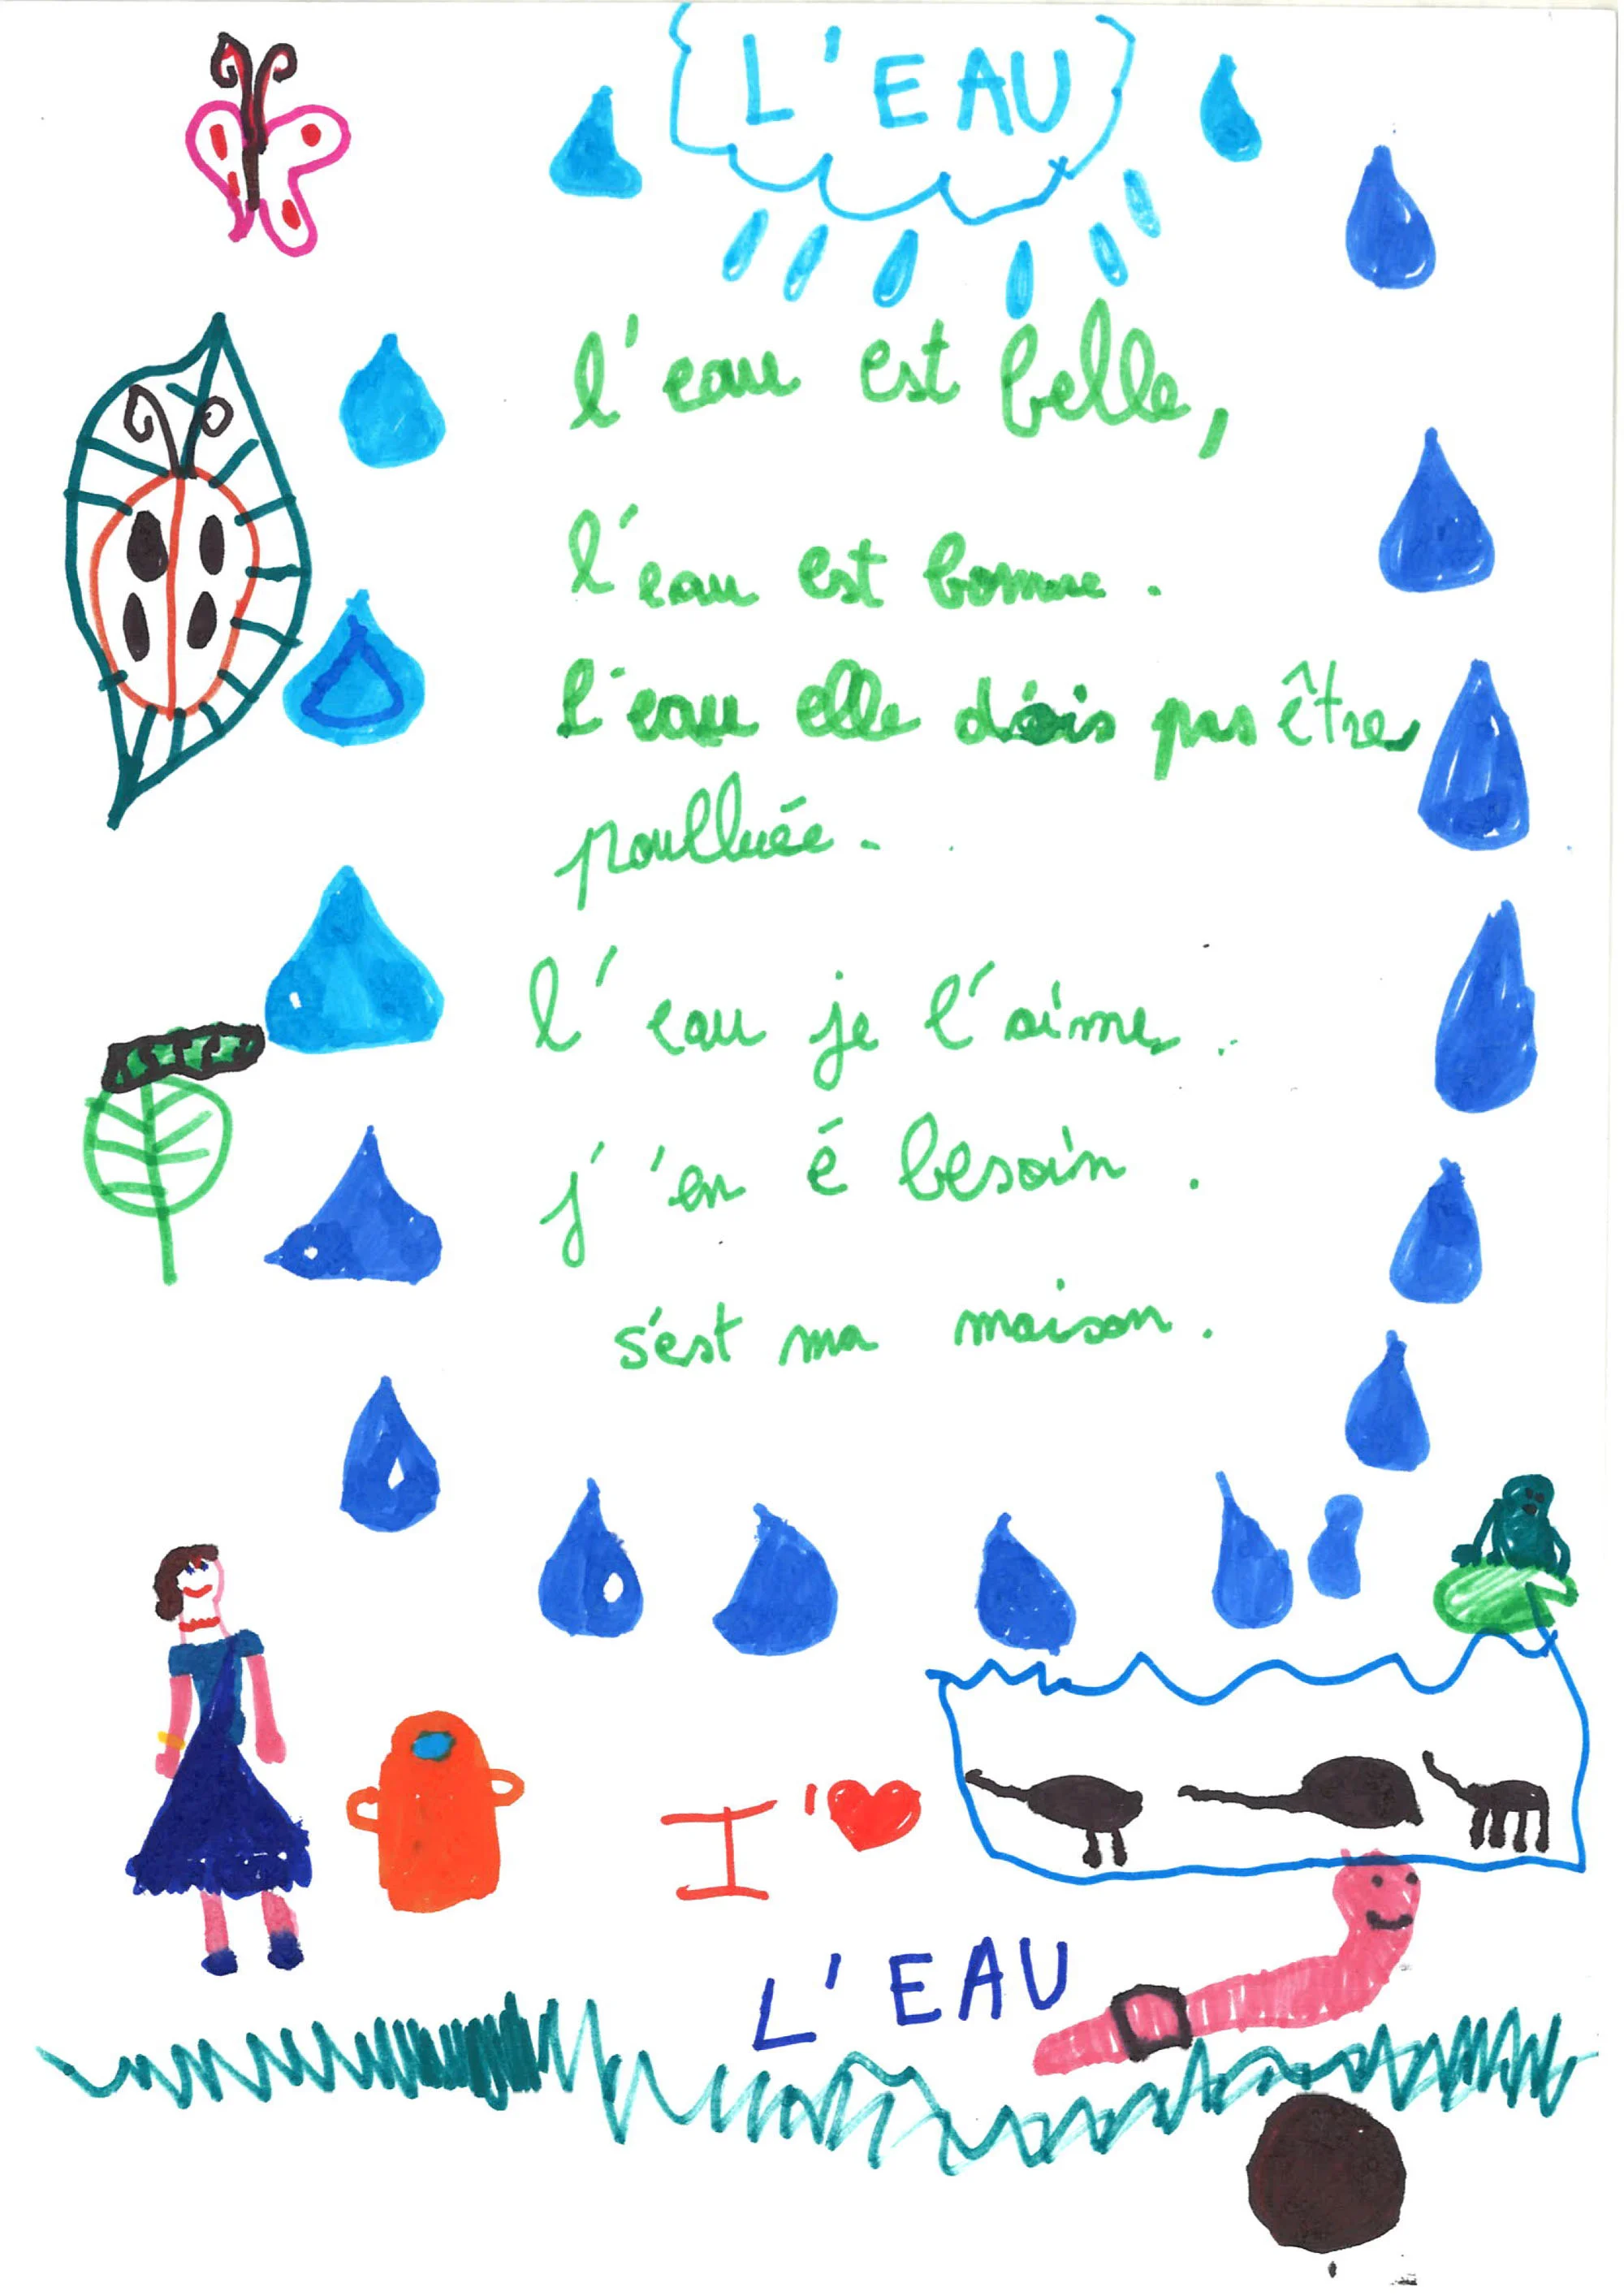 L'EAU
l'eau est belle,
l'eau est bonne.
l'eau elle dois pas être
poulluée.
l'eau je l'aime.
j'en é besoin.
s'est ma maison.
I '
L'EAU